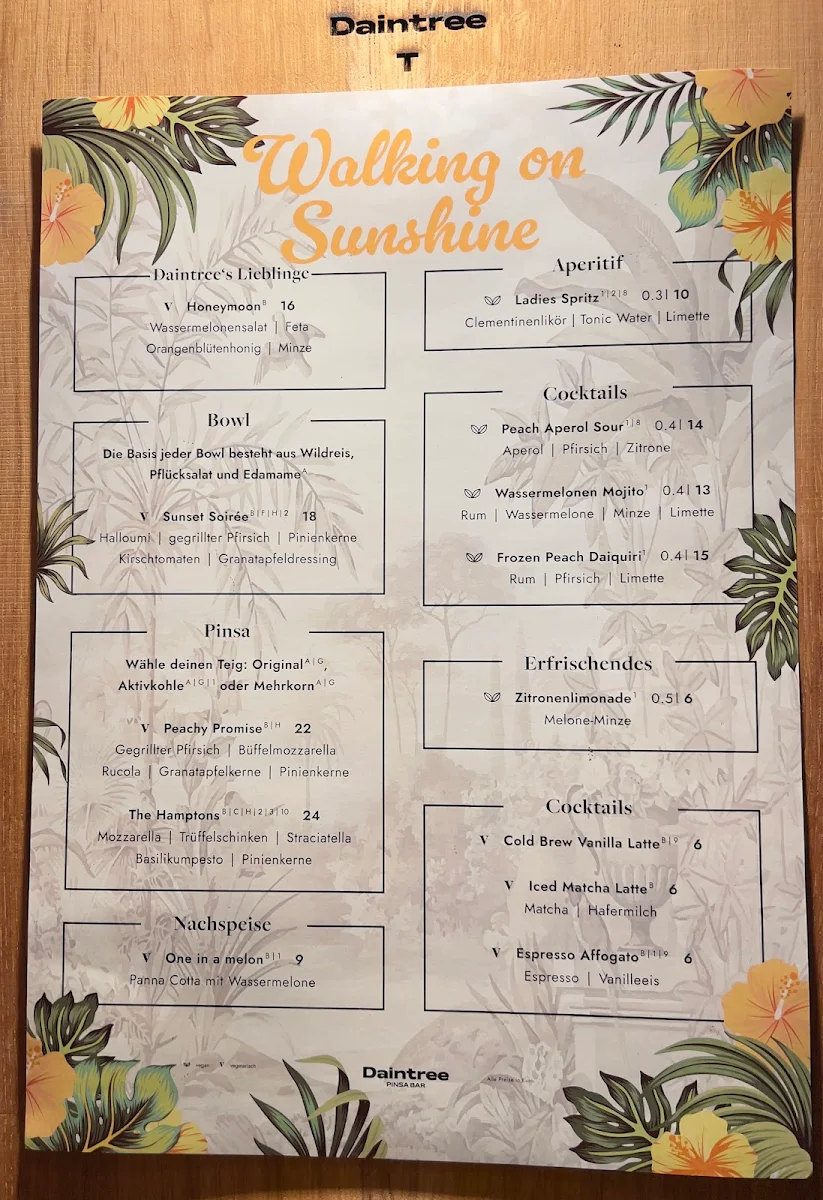 Daintree
T
Walking on
Sunshine
Daintree's Lieblinge
V Honeymoon B 16
Wassermelonensalat | Feta
Orangenblütenhonig | Minze
Bowl
Die Basis jeder Bowl besteht aus Wildreis,
Pflücksalat und Edamame A
V Sunset Soirée B|F|H|2 18
Halloumi | gegrillter Pfirsich | Pinienkerne
Kirschtomaten | Granatapfeldressing
Pinsa
Wähle deinen Teig: Original A|G,
Aktivkohle A|G|1 oder Mehrkorn A|G
V Peachy Promise B|H 22
Gegrillter Pfirsich | Büffelmozzarella
Rucola | Granatapfelkerne | Pinienkerne
The Hamptons B|C|H|2|3|10 24
Mozzarella | Trüffelschinken | Straciatella
Basilikumpesto | Pinienkerne
Nachspeise
V One in a melon B|1 9
Panna Cotta mit Wassermelone
Aperitif
Ladies Spritz 1|2|8 0.3l 10
Clementinenlikör | Tonic Water | Limette
Cocktails
Peach Aperol Sour 1|8 0.4l 14
Aperol | Pfirsich | Zitrone
Wassermelonen Mojito 1 0.4l 13
Rum | Wassermelone | Minze | Limette
Frozen Peach Daiquiri 1 0.4l 15
Rum | Pfirsich | Limette
Erfrischendes
Zitronenlimonade 1 0.5l 6
Melone-Minze
Cocktails
V Cold Brew Vanilla Latte B|9 6
V Iced Matcha Latte B 6
Matcha | Hafermilch
V Espresso Affogato B|1|9 6
Espresso | Vanilleeis
vegan V vegetarisch
Daintree
PINSA BAR
Alle Preise in Euro